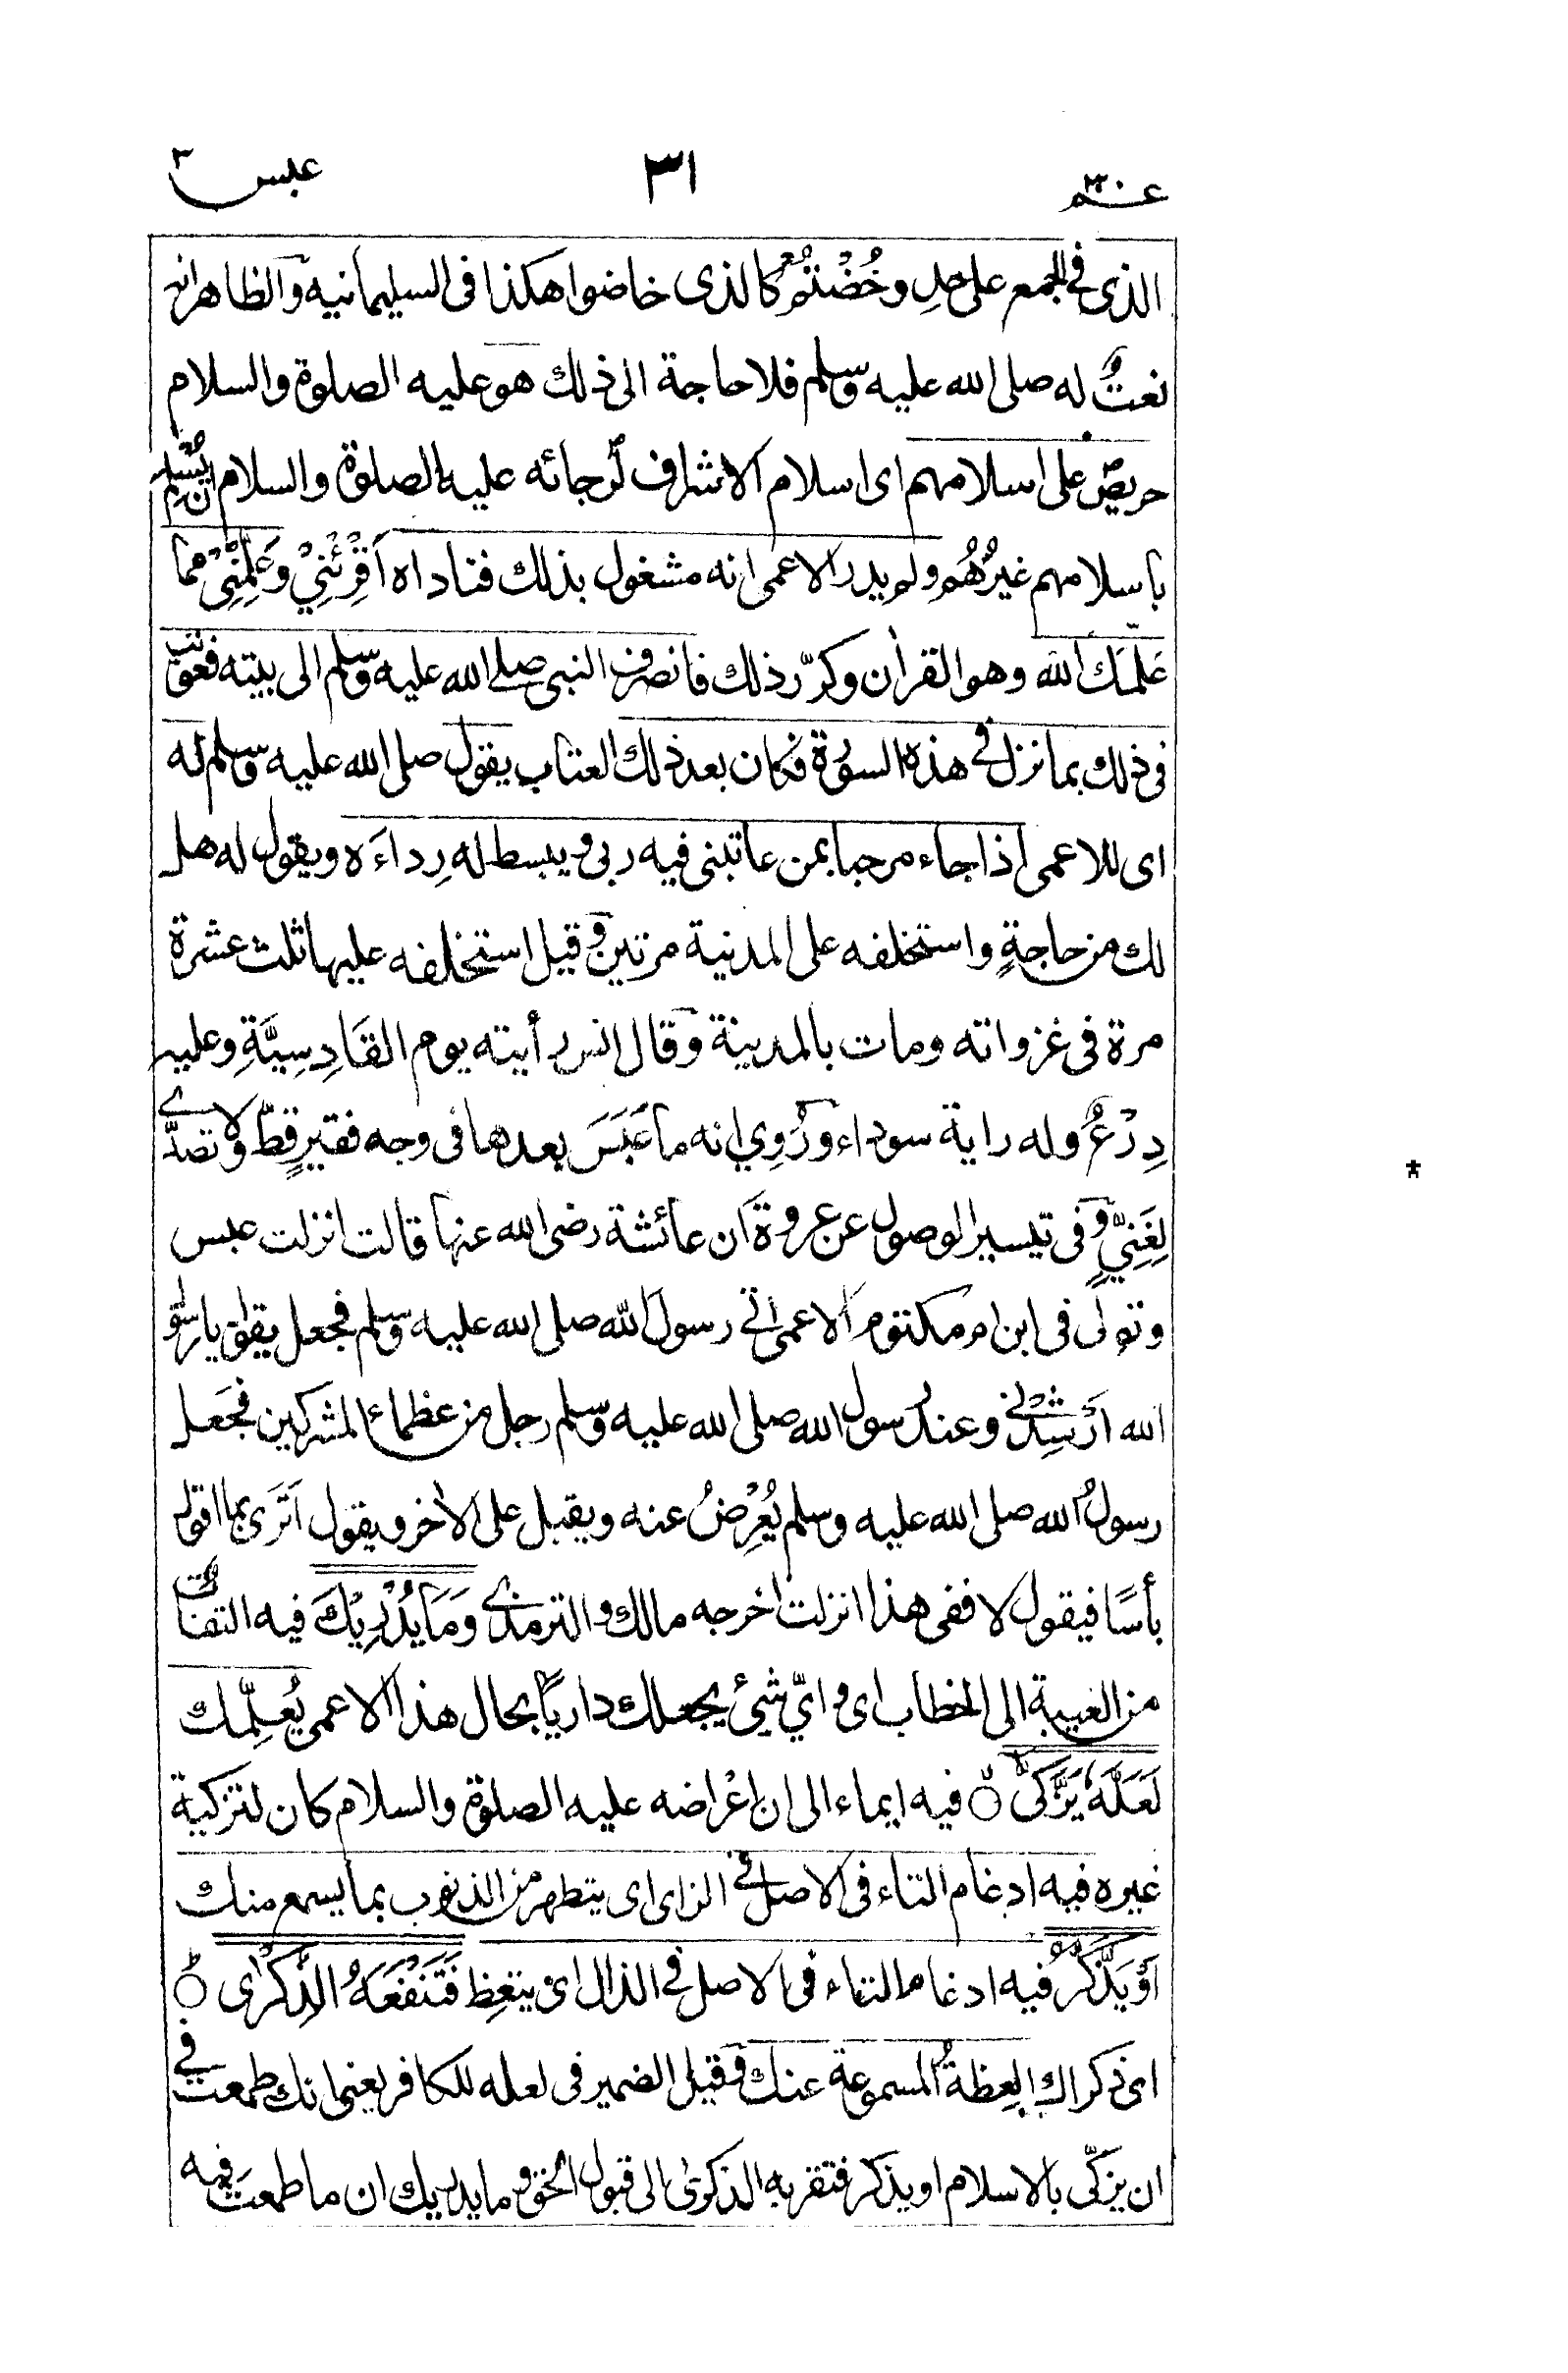 عـم ٣٠
٣١
عبس
الذى فى الجمع على حدِ وخُضْتُمْ كالذى خاضوا هكذا فى السليمانيه والظاهر انه
نعتٌ له صلى الله عليه وسلم فلا حاجة الى ذلك هو عليه الصلوة والسلام
حريصٌ على اسلامهم اى اسلام الاشراف لرجائه عليه الصلوة والسلام ان يُسْلِمَ
باسلامهم غيرُهُم ولم يدر الاعمى انه مشغول بذلك فناداه اَقْرِئْنِيْ وعَلِّمْنِيْ مما
عَلمَك الله وهو القراٰن وكرّر ذلك فانصرف النبى صلى الله عليه وسلم الى بيته فعوتب
فى ذلك بما نزل فى هذه السورة فكان بعد ذلك العتاب يقول صلى الله عليه وسلم له
اى للاعمى اذا جاء مرحبا بمن عاتبنى فيه ربى ويبسط له رِداءَه ويقول له هل
لك من حاجةٍ واستخلفه على المدنية مرتين وقيل استخلفه عليها ثلث عشرة
مرة فى غزواته ومات بالمدينة وقال انس رأيته يوم القَادِسِيَّةِ وعليه
دِرْعٌ وله راية سوداء ورُوِي انه ما عَبَسَ بعدها فى وجه فقيرٍ قطّ ولا تصدّٰے
لِغَنِيٍّ وفى تيسير الوصول عن عروة ان عائشة رضى الله عنها قالت انزلت عبس
وتولى فى ابن ام مكتوم الاعمى اتى رسول الله صلى الله عليه وسلم فجعل يقول يا رسول
الله اَرْشِدْنِى وعند رسول الله صلى الله عليه وسلم رجل من عظماء المشركين فجَعل
رسولُ الله صلى الله عليه وسلم يُعْرِضُ عنه ويقبل على الاٰخر ويقول اَتَرَى بما اقول
بأسًا فيقول لا ففى هذا انزلت اخرجه مالك والترمذے وَمَا يُدْرِيْكَ فيه التفات
من الغيبة الى الخطاب اى واىّ شئ يجعلك داريًا بحال هذا الاعمى يُعلِّمك
لَعَلَّهٗ يَزَّكّٰى ○ فيه ايماء الى ان اعْراضه عليه الصلوة والسلام كان لتزكية
غيره فيه ادغام التاء فى الاصل فى الزاى اى يتطهر من الذنوب بما يسمع منك
اَوْ يَذَّكَّرُ فيه ادغام التاء فى الاصل فى الذال اىْ يتعِظ فَتَنْفَعَهُ الذِّكْرٰى ○
اى ذكراك العِظةُ المسموعة عنك وقيل الضمير فى لعله للكافر يعنى انك طمعت فى
ان يزكّى بالاسلام او يذكر فتقربه الذكرىٰ الى قبول الحق وما يدريك ان ما طمعتَ فيه